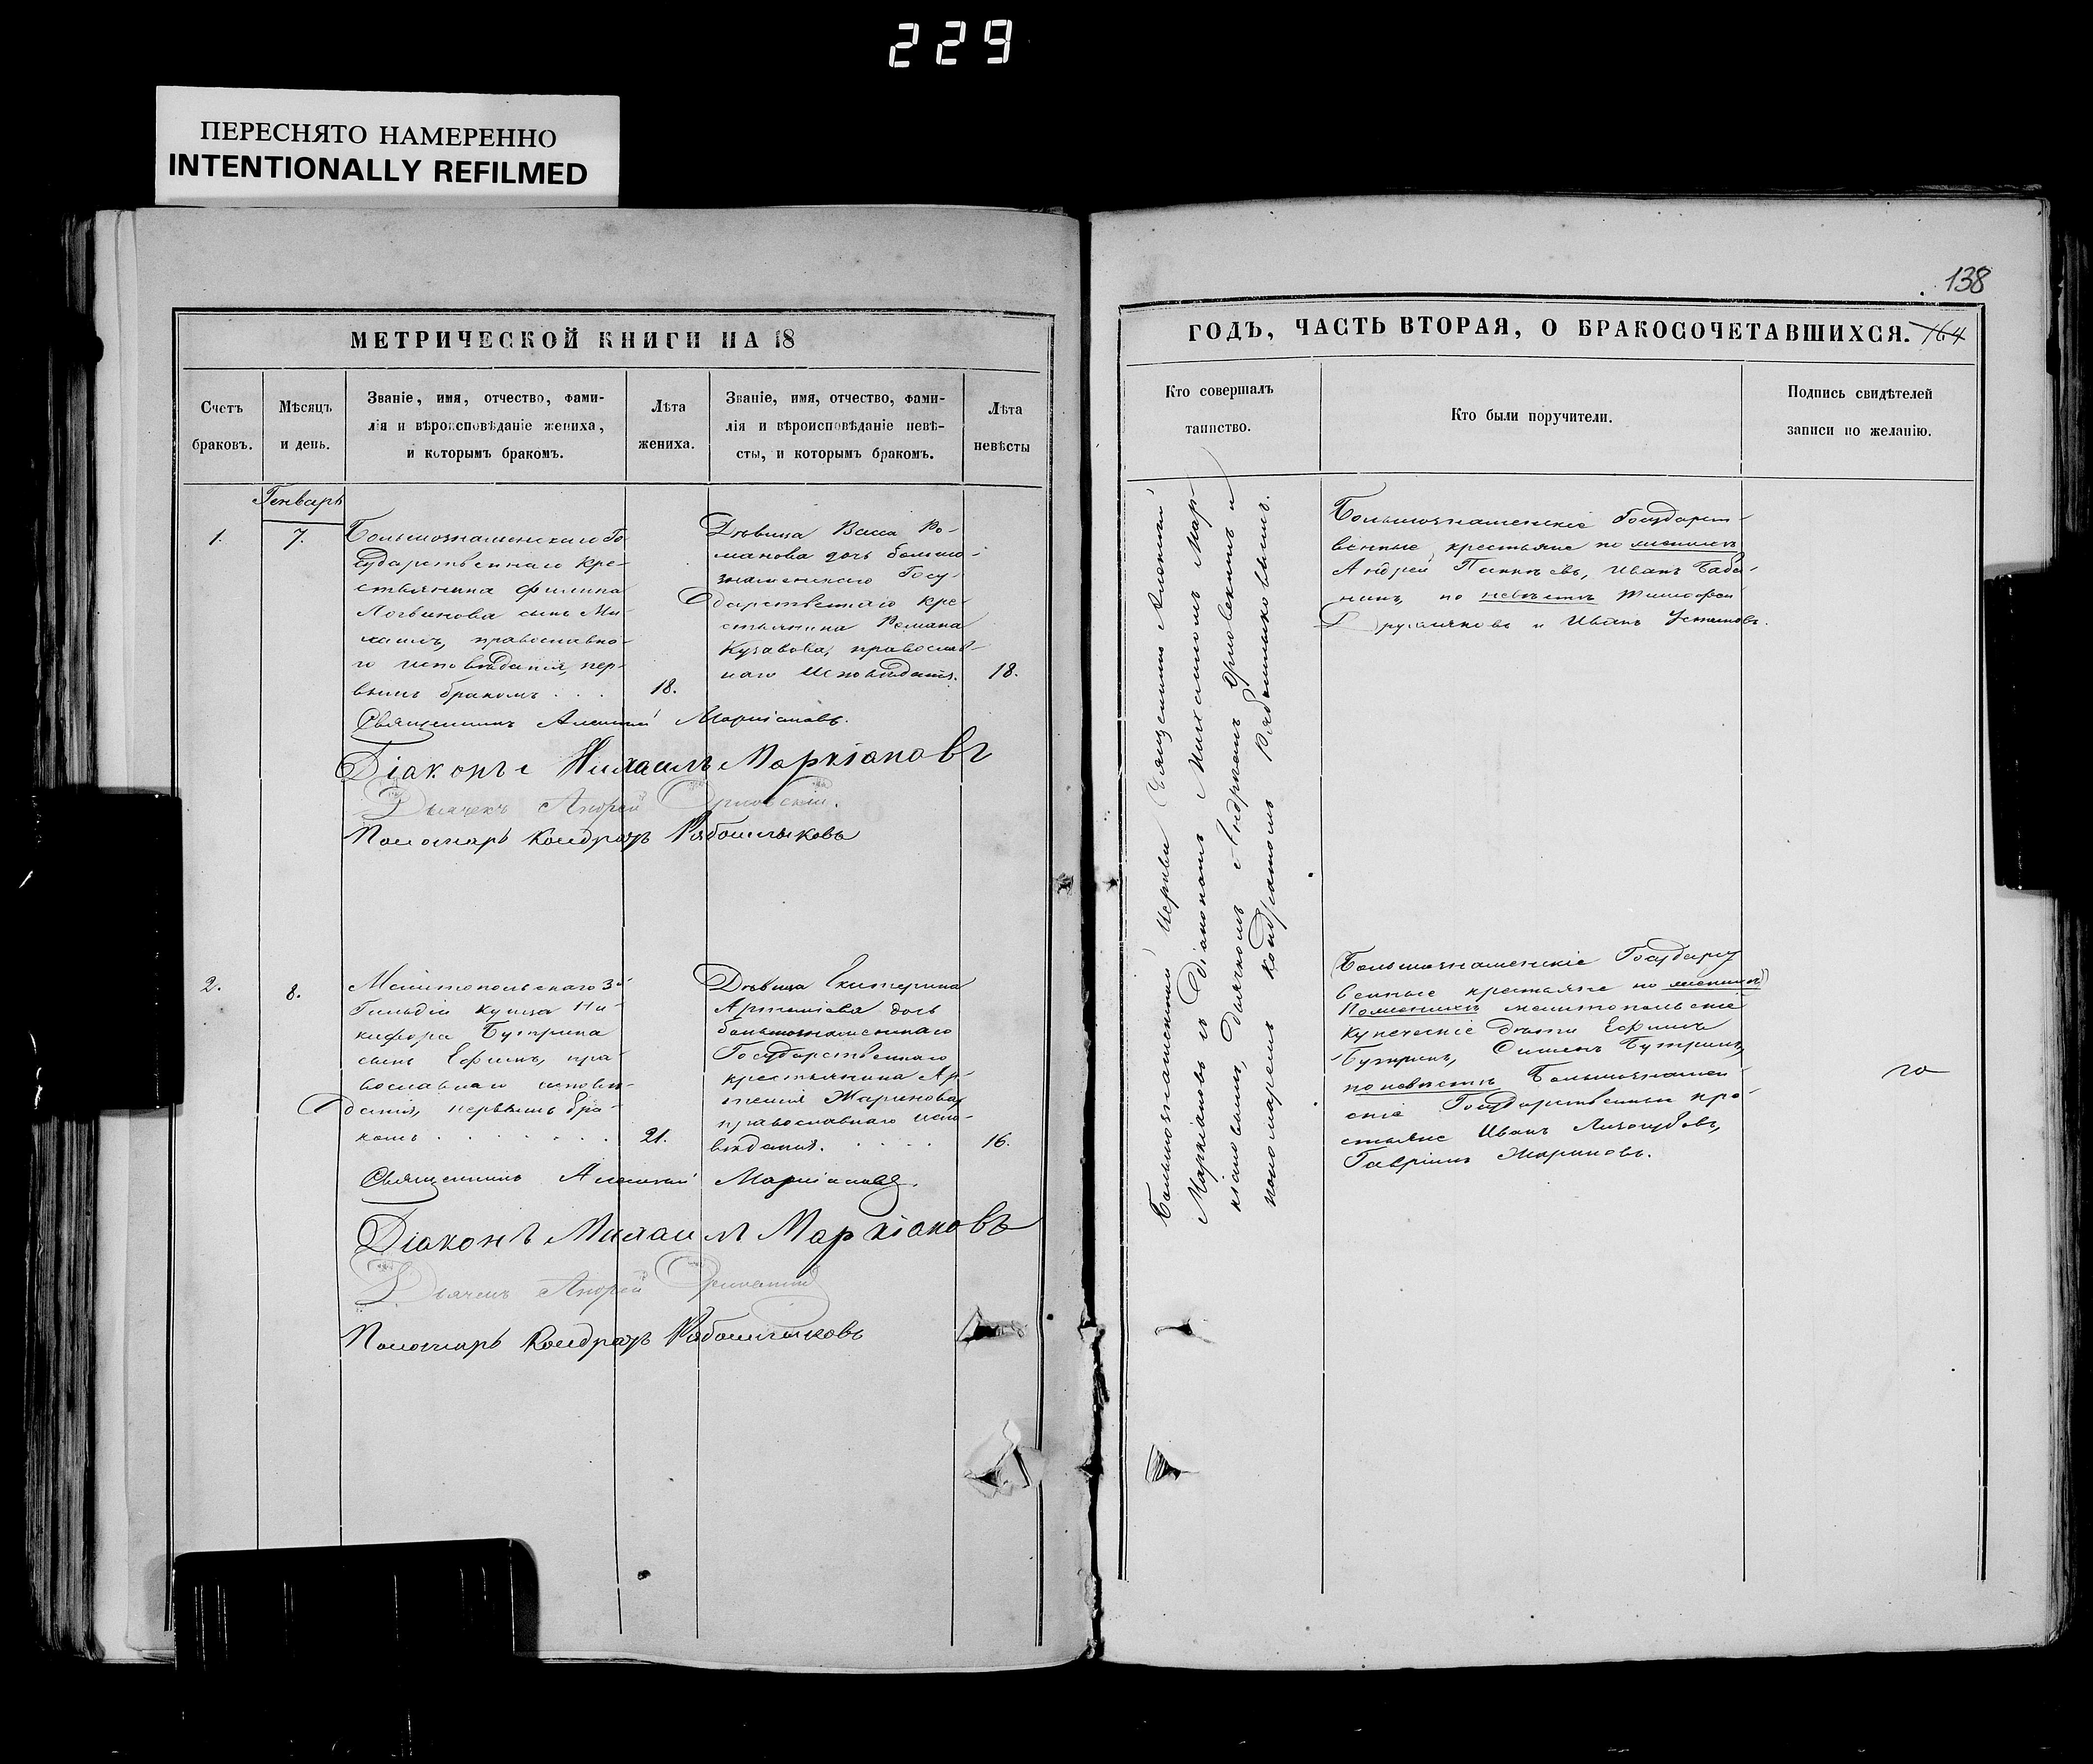 229
ПЕРЕСНЯТО НАМЕРЕННО
INTENTIONALLY REFILMED
МЕТРИЧЕСКОЙ КНИГИ НА 18
Счетъ
браковъ.
Мѣсяцъ
и день.
Званіе, имя, отчество, фами-
лія и вѣроисповѣданіе жениха,
и которымъ бракомъ.
Лѣта
жениха.
Званіе, имя, отчество, фами-
лія и вѣроисповѣданіе невѣ-
сты, и которымъ бракомъ.
Лѣта
невѣсты
Генварь
1.
7.
Большознаменскаго Го-
сударственнаго Кре-
стьянина Филиппа
Логвинова сынъ Ми-
хаилъ, православна-
го исповѣданія, пер-
вымъ бракомъ . . .
18.
Дѣвица Васса Ро-
манова дочь большо-
знаменскаго Госу-
дарственнаго Кре-
стьянина Романа
православ-
наго исповѣданія.
18.
Священникъ Алексій Маркіановъ.
Діаконъ Михаилъ Маркіановъ
Дьячекъ Андрей Орловскій.
Пономарь Кондратъ Рябошлыковъ
2.
8.
Мелитопольскаго 3й
Гильдіи купца Ни-
кифора Бутрина
сынъ Ефимъ, пра-
вославнаго исповѣ-
данія, первымъ бра-
комъ . . . . . .
21.
Дѣвица Екатерина
Артеміева дочь
большознаменскаго
Государственнаго
крестьянина Ар-
темія Жаринова,
православнаго испо-
вѣданія. . . . .
16.
Священникъ Алексій Маркіановъ.
Діаконъ Михаилъ Маркіановъ
Дьячекъ Андрей Орловскій
Пономарь Кондратъ Рябошлыковъ
138
ГОДЪ, ЧАСТЬ ВТОРАЯ, О БРАКОСОЧЕТАВШИХСЯ.
164
Кто совершалъ
таинство.
Кто были поручители.
Подпись свидѣтелей
записи по желанію.
Большознаменской Церкви Священникъ Алексій
Маркіановъ съ Діакономъ Михаиломъ Мар-
кіановымъ, Дьячкомъ Андреемъ Орловскимъ и
пономаремъ Кондратомъ Рябошлыковымъ.
Большознаменскіе Государст-
венные крестьяне по женихѣ
Андрей Иванъ Баба-
нинъ, по невѣстѣ Тимофей
и Иванъ Устиновъ.
Большознаменскіе Государст-
венные крестьяне по женихѣ
По женихѣ мелитопольскіе
купеческіе дѣти Ефимъ
Бутринъ, Семенъ Бутринъ,
по невѣстѣ Большознамен-
скіе Государственные кре-
стьяне Иванъ Лизогубовъ,
Гавріилъ Жариновъ.